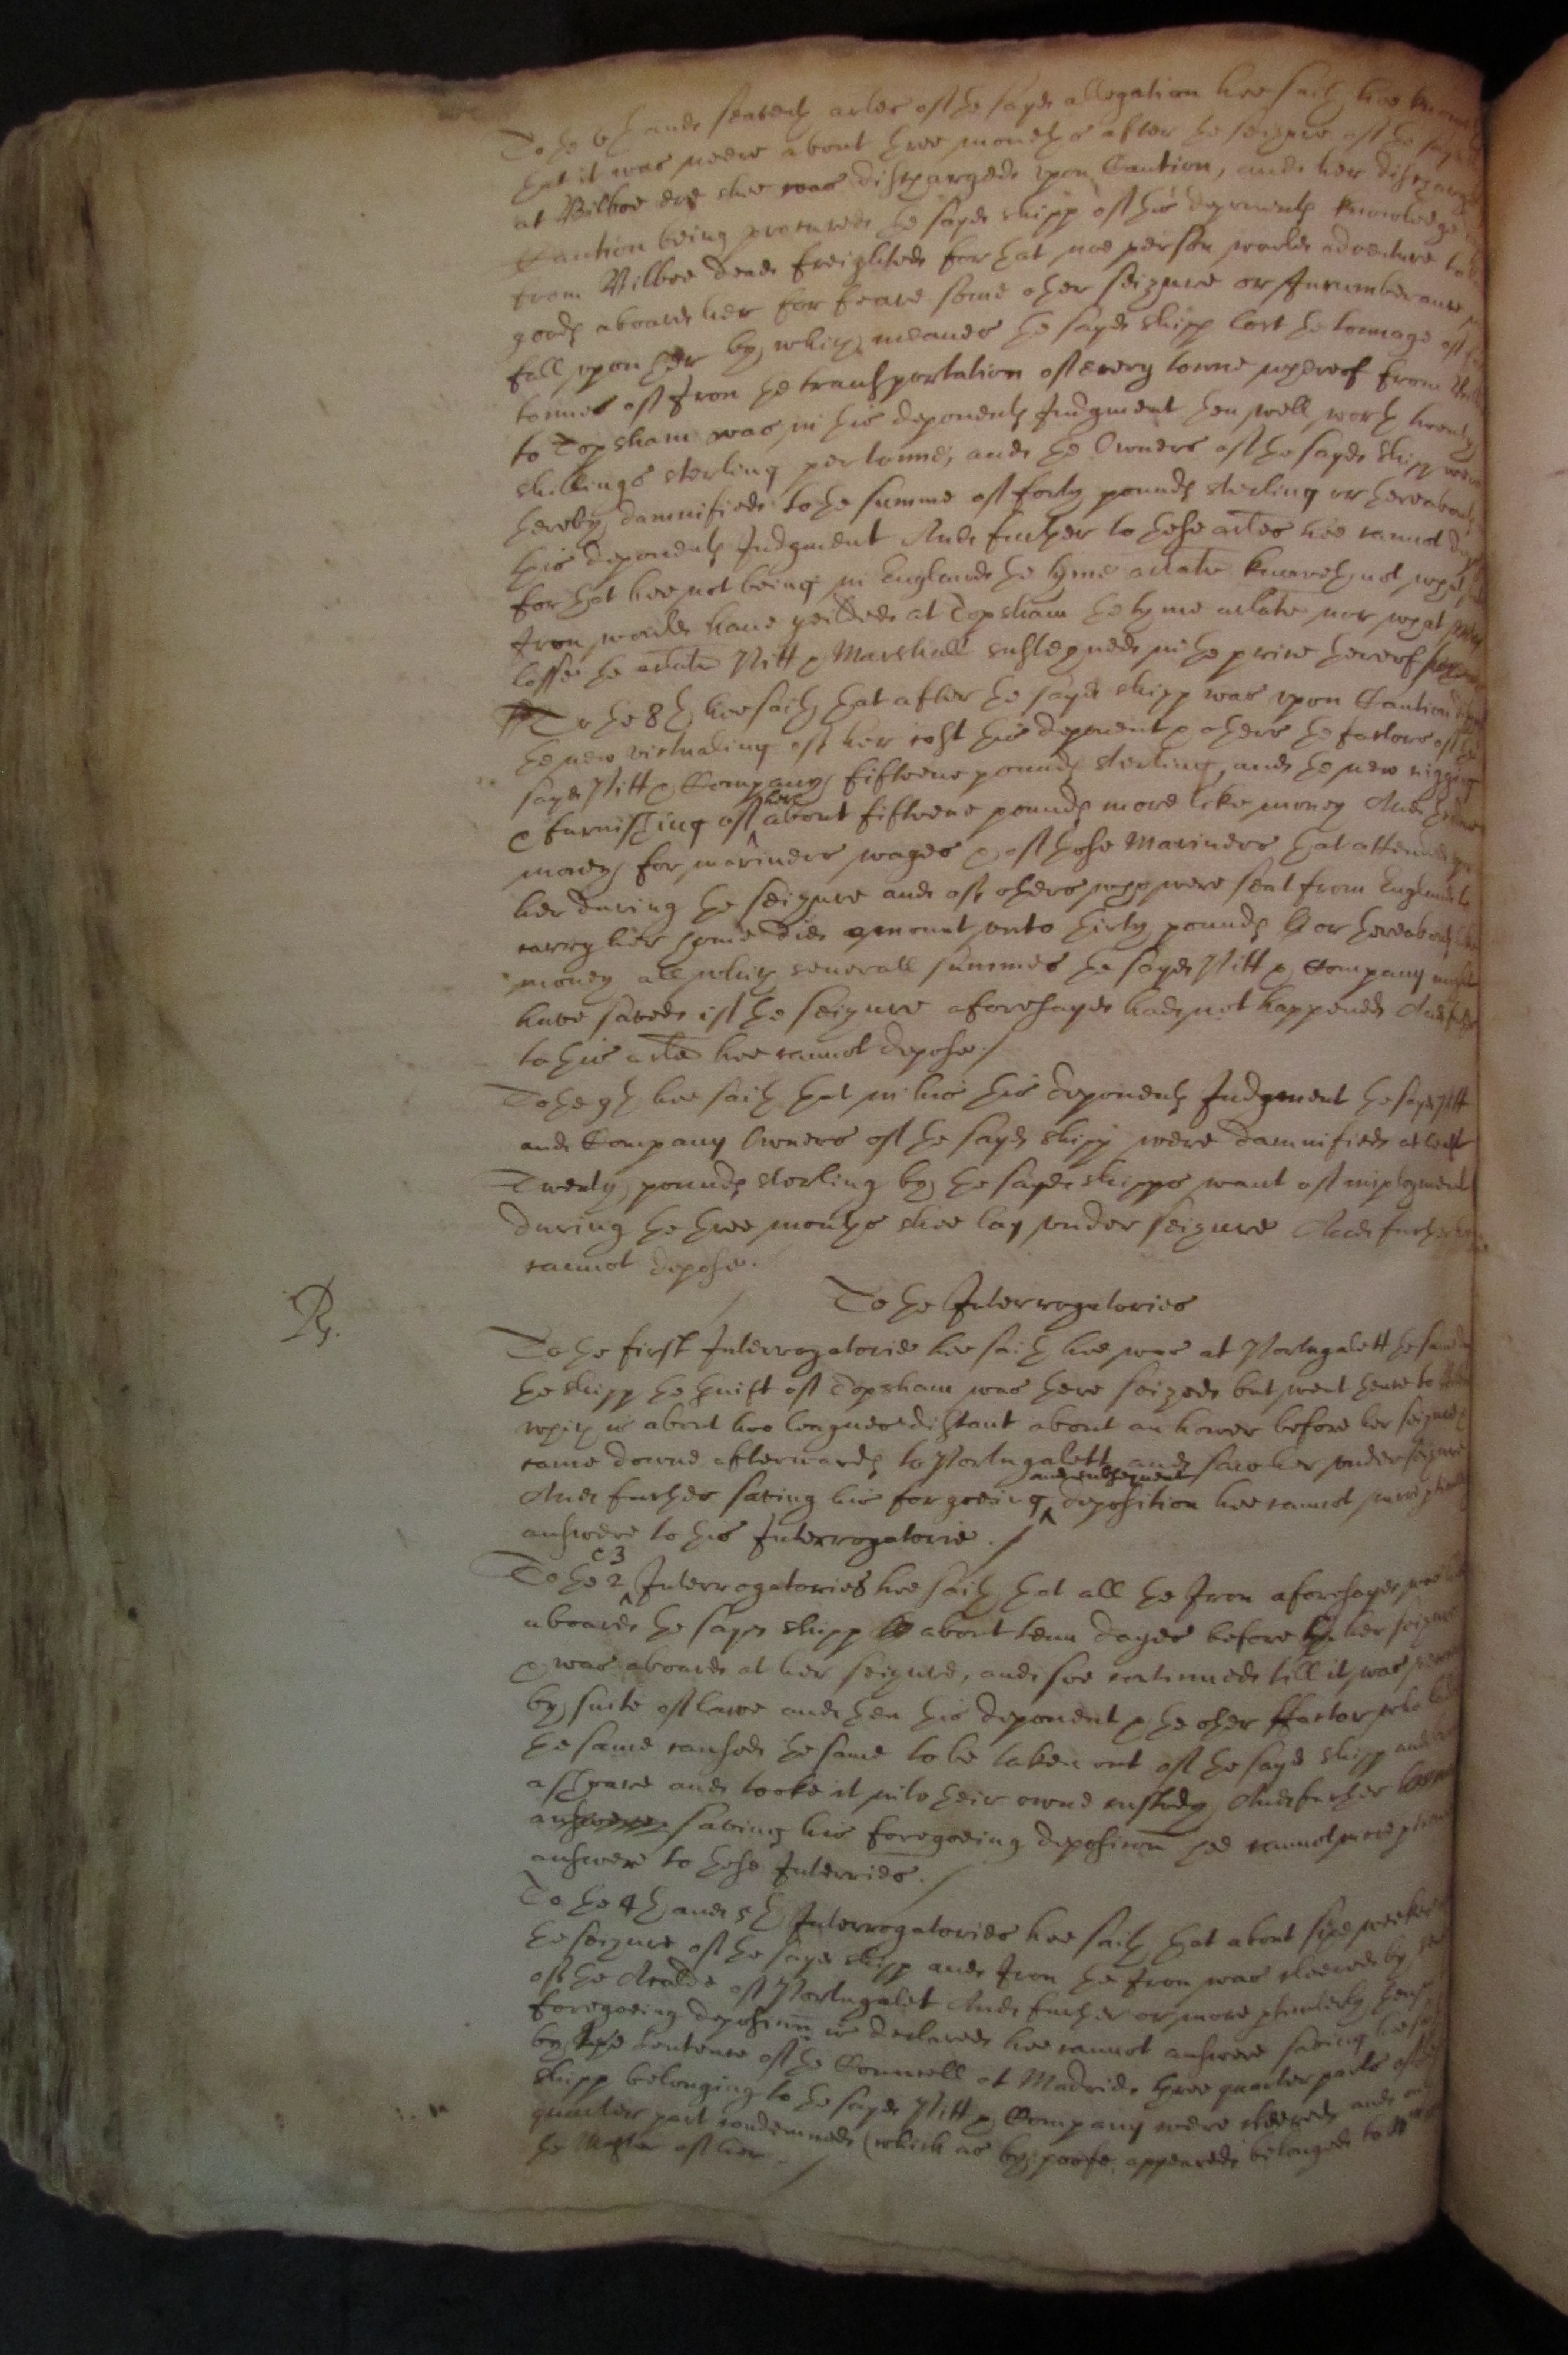 To the 6th and seaventh arles of the sayd allegation hee saith hee knoweth
that it was neere about three moneths after the seizure of the sayd
at Bilboe ere shee was discharged upon Caution, and her discharge
Caution being procured the sayd shipp of this deponents knowledge
from Bilboe dead freighted for that noe person would adventure to
goods aboard her for feare some other seizure or Incumberance
fall upon her by which meanes the sayd shipp lost the tonnage of
tonnes of Iron the transportation of every tonne whereof from
to Topsham was in his deponents Judgment then well worth twenty
shillings sterling per tonne, and the Owners of the sayd shipp were
thereby damnified to the summe of forty pounds sterling or thereabouts
this deponents Judgment And further to these arles hee cannot
for that hee not being in England the tyme arlate knoweth not what
Iron would have yeilded at Topsham the tyme arlate nor what
losse the arlate Pitt & Marshall susteyned in the price thereof
To the 8th hee saith that after the sayd shipp was upon Caution
the new victualing of her cost this deponent & others the factors of the
sayd Pitt & Company fifteene pounds sterling, and the new rigging
& furnishing of her about fifteene pounds more like money And the
money for mariners wages & of those Mariners that attended
her during the seizure and of others who were sent from England to
carry her home did amount unto thirty pounds or thereabouts like
money all which severall summes the sayd Pitt & Company might
have saved if the seizure aforesayd had not happened And further
to this arle hee cannot depose./
To the 9th hee saith that in his this deponents Judgment the sayd Pitt
and Company Owners of the sayd shipp were damnified at least
Twenty pounds sterling by the sayd shipps want of imployment
during the three months shee lay under seizure And further hee
cannot depose.
To the Interrogatories
R.
To the first Interrogatorie hee saith hee was at Portugalett the same
the shipp the Swift of Topsham was there seized but went thence to
which is about two leagues distant about an hower before her seizure &
came downe afterwards to Portugalett and saw her under seizure
And further saving his forgoeing and subsequent deposition hee cannot
answere to this Interrogatorie./
To the 2 & 3 Interrogatories hee saith that all the Iron aforesayd
aboard the sayd shipp about tenn dayes before her seizure
& was aboard at her seizure, and soe continued till it was
by suite of lawe and then this deponent & the other ffactor who
the same caused the same to be taken out of the sayd shipp and
ashoare and tooke it into their owne custody And further
answere saving his foregoeing deposition hee cannot
answer to these Interries./
To the 4th and 5th Interrogatories hee saith that about sixe weekes
the seizure of the sayd shipp and Iron the Iron was cleered by
of the Alcalde of Portugalet And further or more
foregoeing deposition is declared hee cannot answere saving hee
by the sentence of the Councell at Madrid three quarter parts of the
shipp belonging to the sayd Pitt & Company were cleered and
quarter part condemned (which as by proofe appeared belonged to
the Master of her./